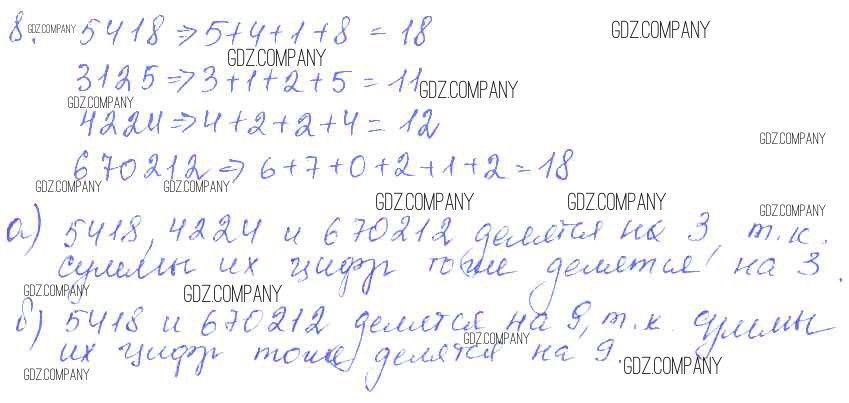 8. GDZ.COMPANY 5418 => 5+4+1+8 = 18 GDZ.COMPANY
GDZ.COMPANY
3125 => 3+1+2+5 = 11 GDZ.COMPANY
GDZ.COMPANY
4224 => 4+2+2+4 = 12 GDZ.COMPANY
670212 => 6+7+0+2+1+2 = 18
GDZ.COMPANY GDZ.COMPANY
GDZ.COMPANY GDZ.COMPANY GDZ.COMPANY
а) 5418, 4224 и 670212 делятся на 3, т.к.
суммы их цифр тоже делятся на 3.
GDZ.COMPANY GDZ.COMPANY
б) 5418 и 670212 делятся на 9, т.к. суммы
GDZ.COMPANY
их цифр тоже делятся на 9.
GDZ.COMPANY GDZ.COMPANY